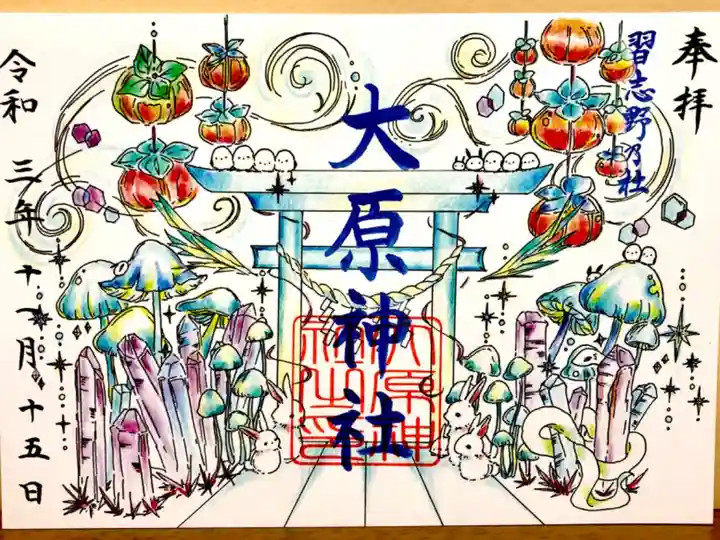 奉拝
習志野乃社
大原神社
大原神
社之印
令和三年十一月十五日